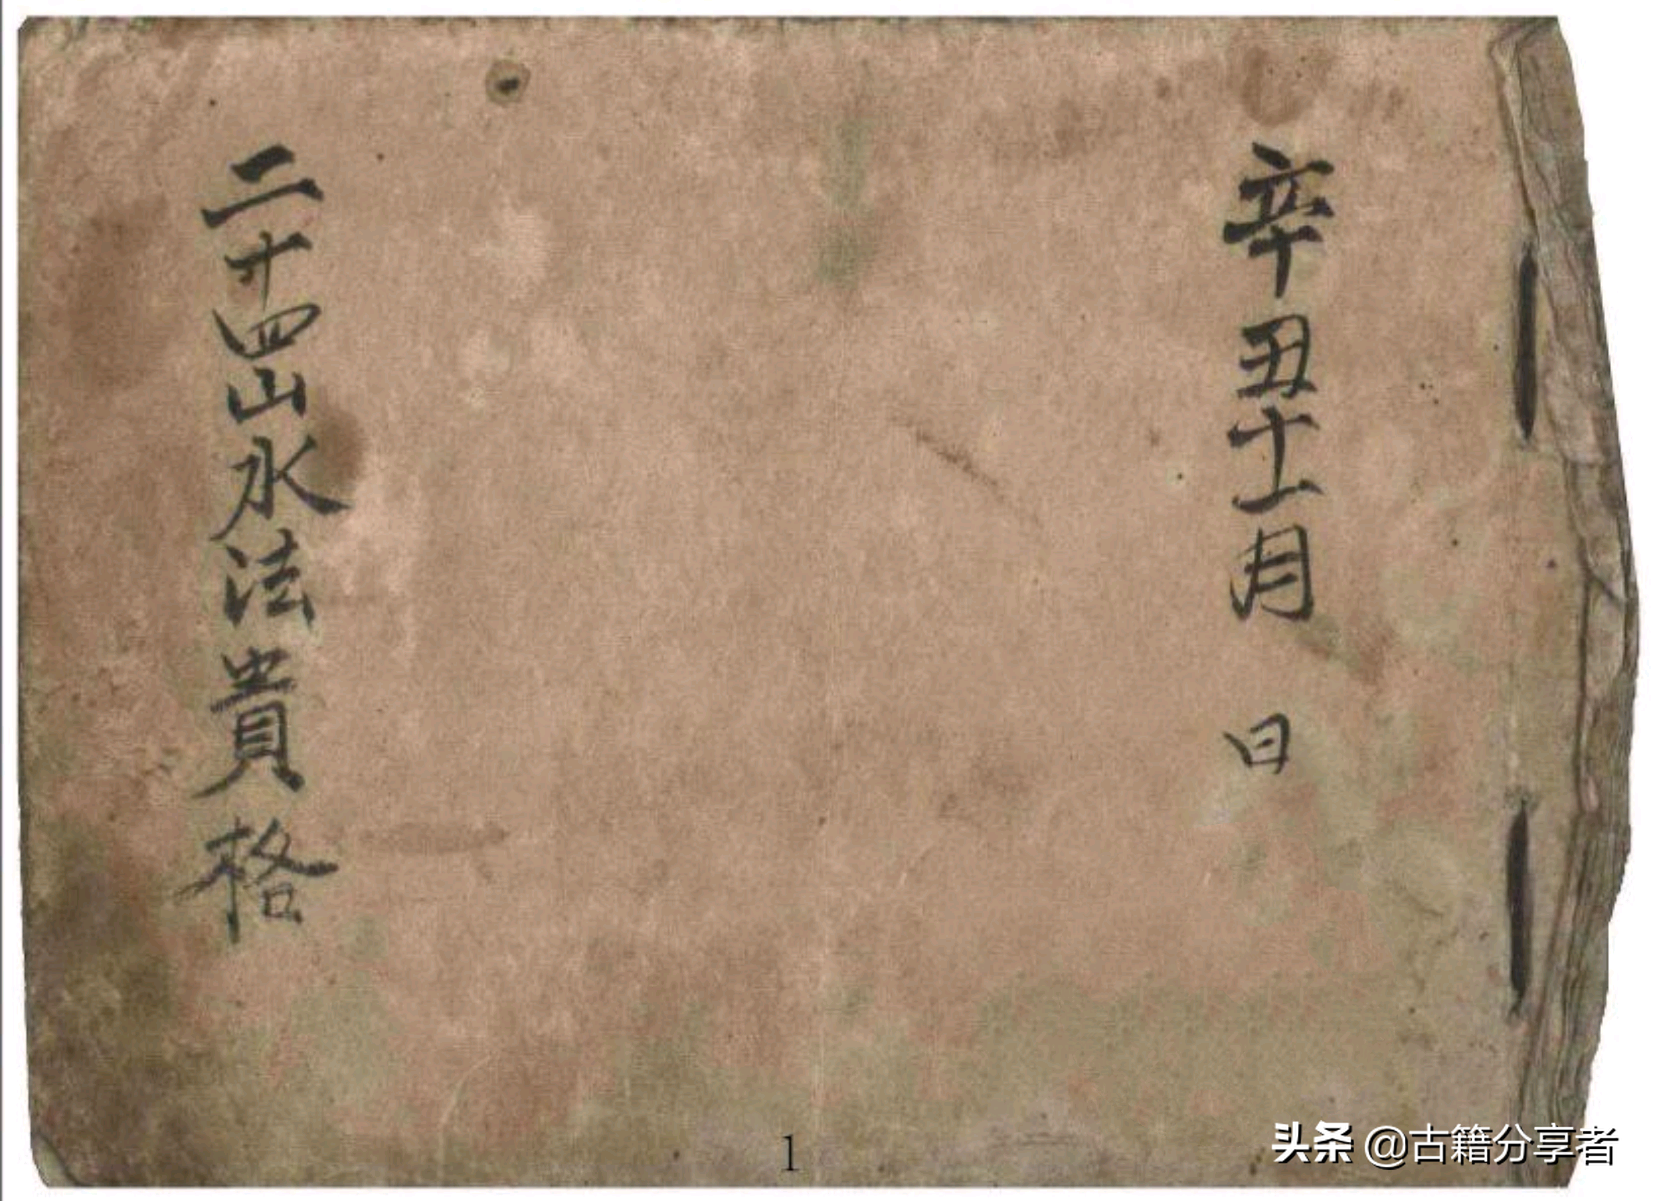 辛丑十一月 日
二十四山水法貴格
1
头条 @古籍分享者